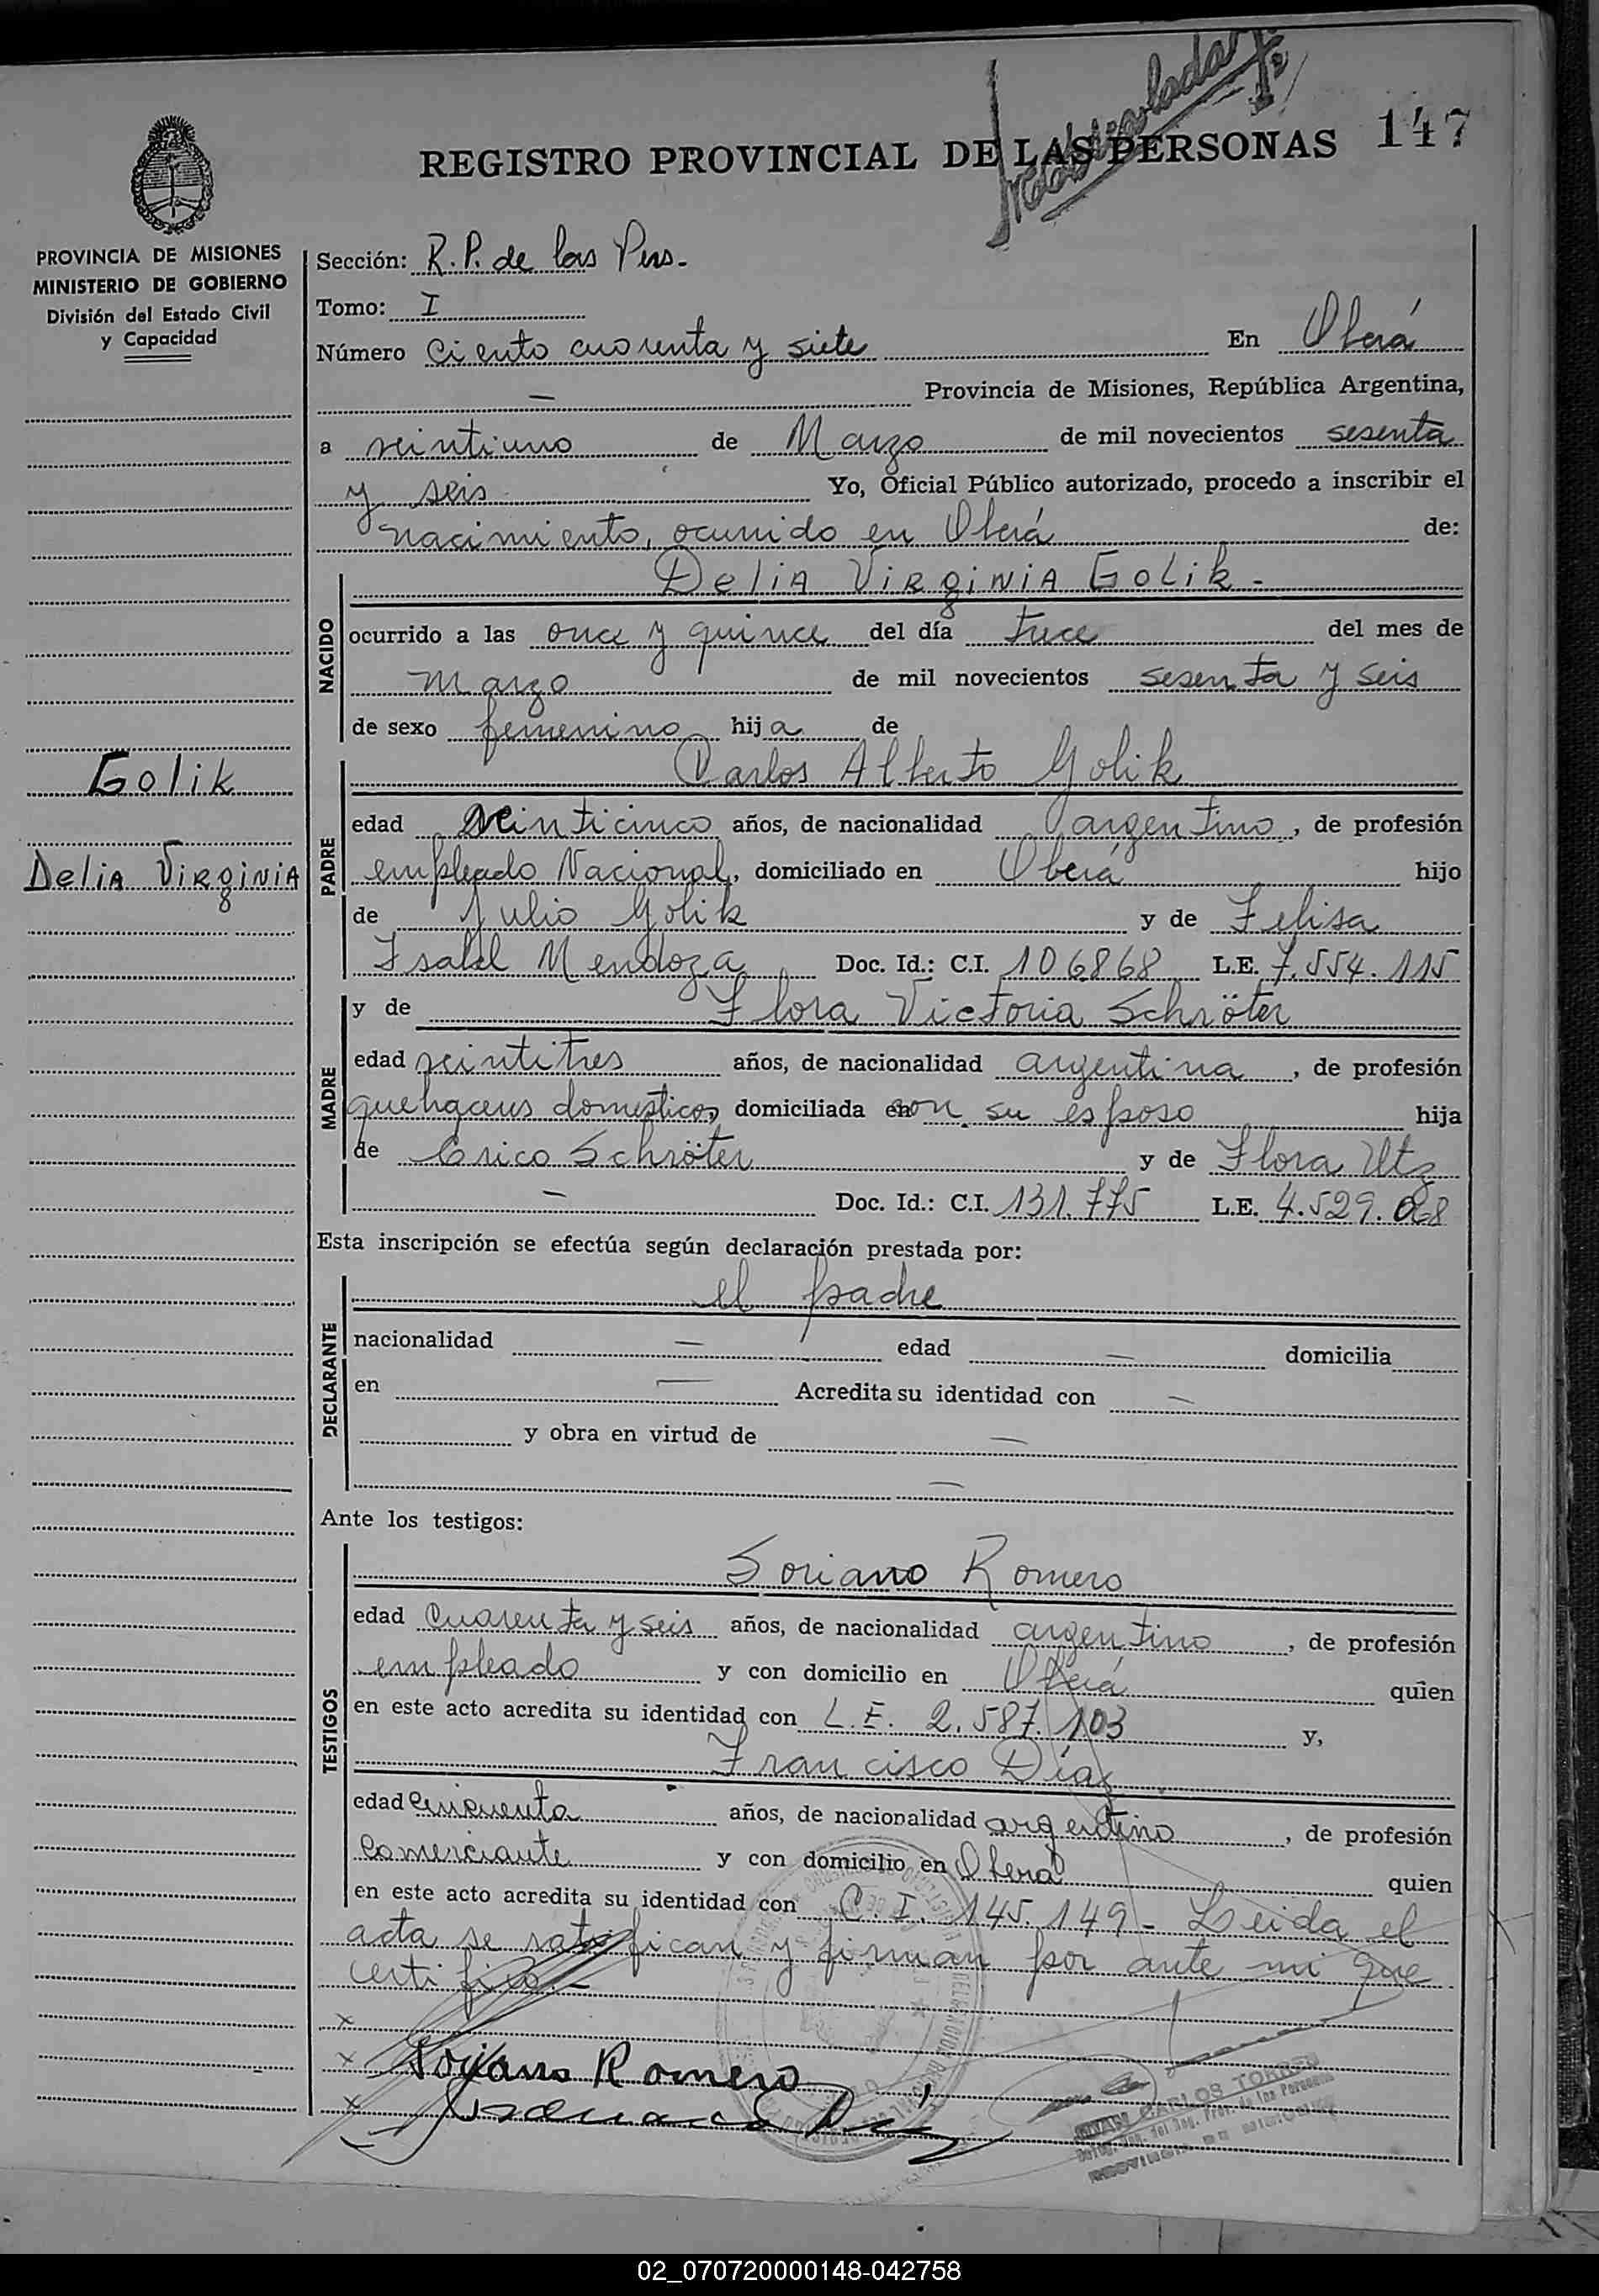 147
REGISTRO PROVINCIAL DE LAS PERSONAS
PROVINCIA DE MISIONES
MINISTERIO DE GOBIERNO
División del Estado Civil
y Capacidad
Golik
Delia Virginia
Sección: R.P. de las Pers.
Tomo: I
Número ciento cuarenta y siete En Oberá
— Provincia de Misiones, República Argentina,
a veintiuno de Marzo de mil novecientos sesenta
y seis Yo, Oficial Público autorizado, procedo a inscribir el
nacimiento, ocurrido en Oberá de:
NACIDO
Delia Virginia Golik.-
ocurrido a las once y quince del día trece del mes de
marzo de mil novecientos sesenta y seis
de sexo femenino hija de
PADRE
Carlos Alberto Golik
edad veinticinco años, de nacionalidad argentino, de profesión
empleado Nacional, domiciliado en Oberá hijo
de Julio Golik y de Felisa
Isabel Mendoza Doc. Id.: C.I. 106868 L.E. 7.554.115
MADRE
y de Flora Victoria Schröter
edad veintitres años, de nacionalidad argentina, de profesión
quehaceres domesticos, domiciliada en con su esposo hija
de Erico Schröter y de Flora Utz
— Doc. Id.: C.I. 131.775 L.E. 4.529.068
Esta inscripción se efectúa según declaración prestada por:
DECLARANTE
el padre
nacionalidad — edad — domicilia
en — Acredita su identidad con —
y obra en virtud de —
—
Ante los testigos:
TESTIGOS
Soriano Romero
edad cuarenta y seis años, de nacionalidad argentino, de profesión
empleado y con domicilio en Oberá quien
en este acto acredita su identidad con L.E. 2.587.103 y,
Francisco Díaz
edad cincuenta años, de nacionalidad argentino, de profesión
comerciante y con domicilio en Oberá quien
en este acto acredita su identidad con C.I. 145.149- Leida el
acta se ratifican y firman por ante mi que
certifico.-
x
x Soriano Romero
x
JUAN CARLOS TORRES
02_070720000148-042758